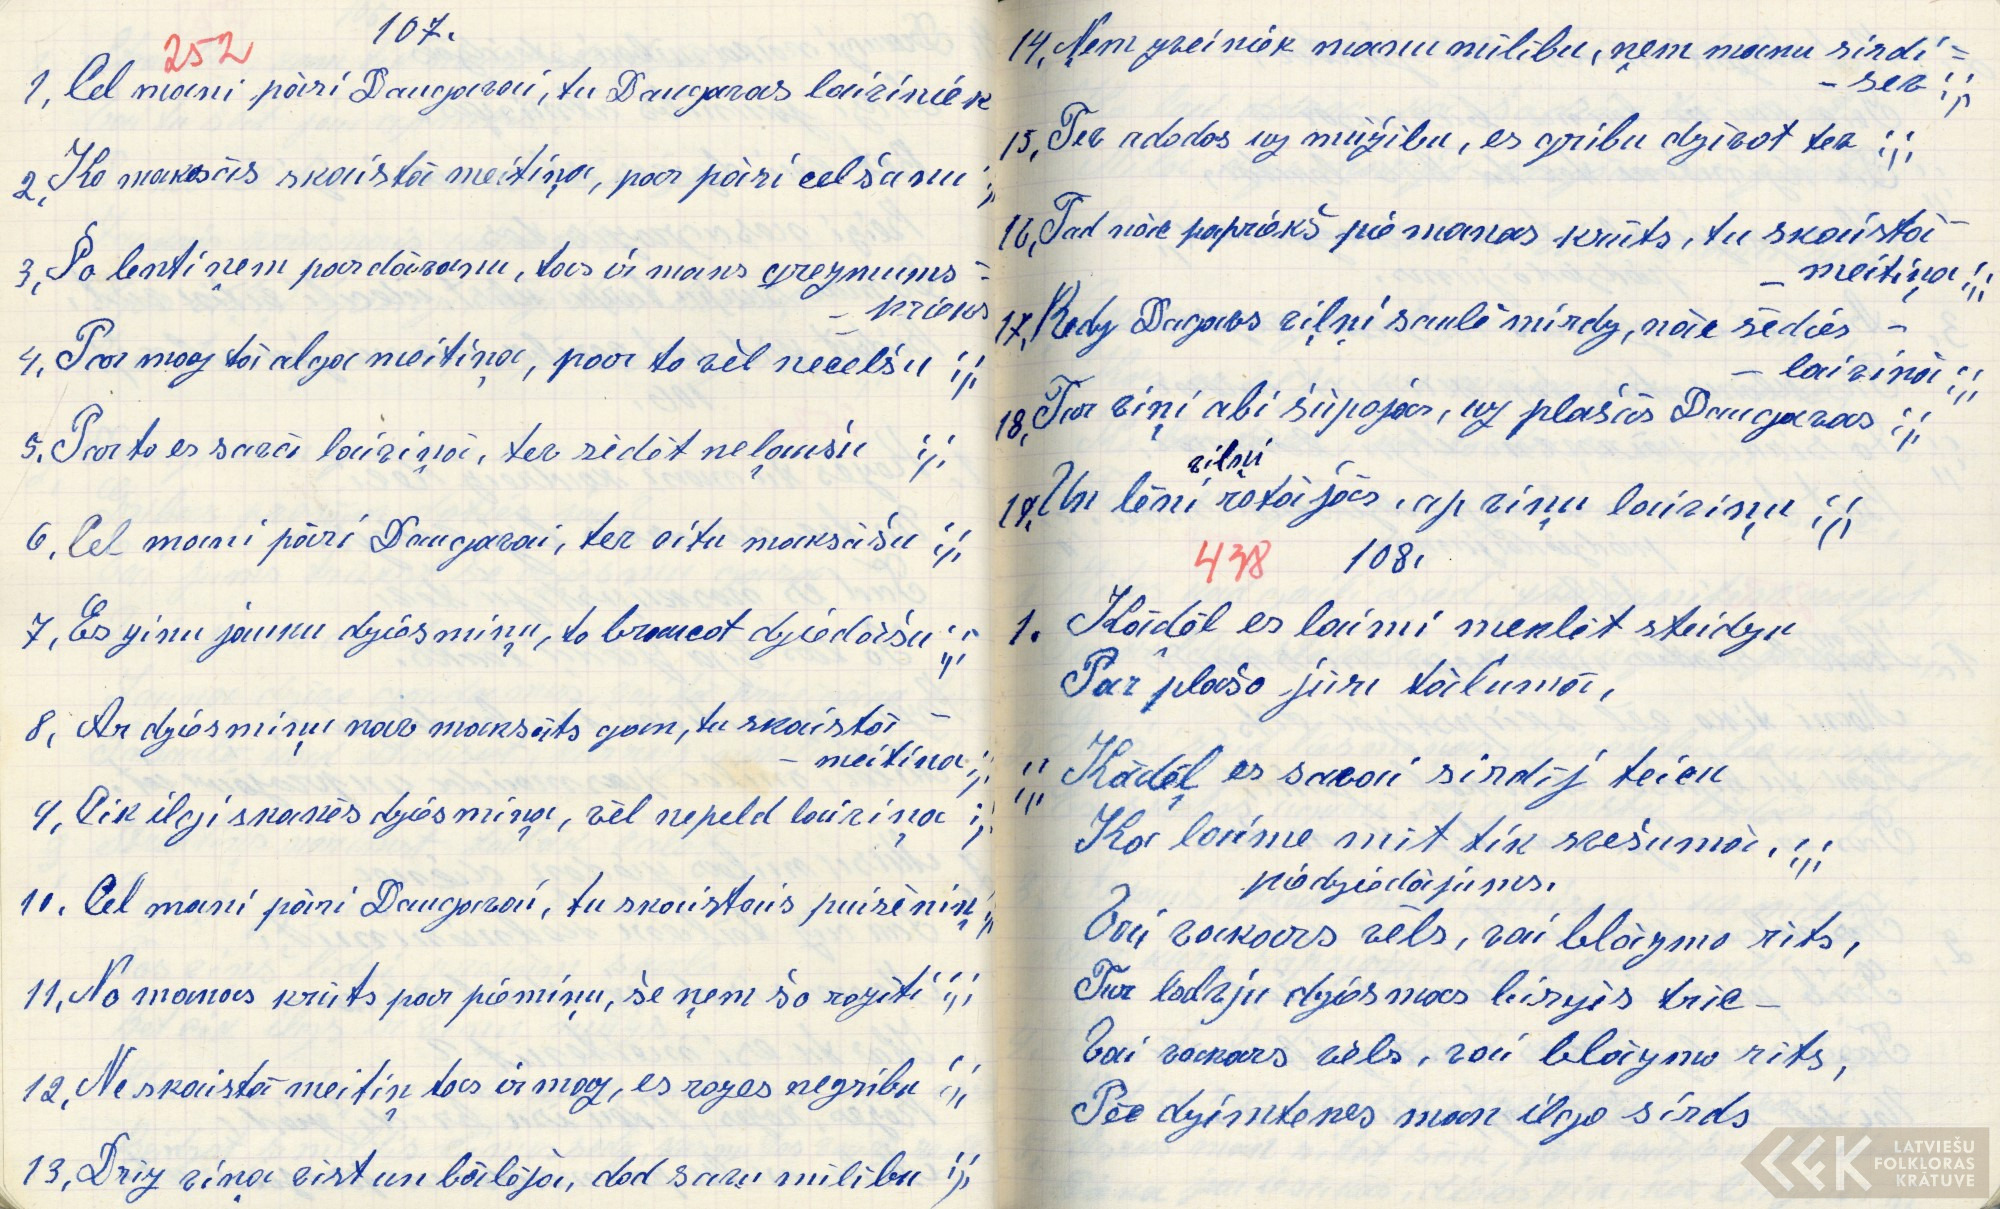 252
107.
1, Cel mani pāri Daugavai, tu Daugavas laiviniek
2, Ko maksās skaistā meitiņa, par pāri celšanu ;,;
3, Šo lenti ņem par dāvanu, tas ir mans greznums =
– prieks
4, Par maz tā alga meitiņa, par to vēl necelšu ;,;
5, Par to es savā laiviņā, tev sēdēt neļaušu ;,;
6, Cel mani pāri Daugavai, tev citu maksāšu ;,;
7, Es zinu jaunu dziesmiņu, to braucot dziedāšu ;,;
8, Ar dziesmiņu nav maksāts gan, tu skaistā –
– meitiņa ;,;
9, Cik ilgi skanēs dziesmiņa, vēl nepeld laiviņa ;,;
10. Cel mani pāri Daugavai, tu skaistais puisēniņ ;,;
11, No manas krūts par piemiņu, še ņem šo rozīti ;,;
12, Ne skaistā meitiņ tas ir maz, es rozes negribu ;,;
13, Drīz viņa vist un bālēja, dod savu mīlibu ;,;
14, Ņem zveiniek manu mīlibu, ņem manu sirdi =
– sev ;,;
15, Tev adodos uz mūžibu, es gribu dzīvot tev ;,;
16, Tad nāc papriekš pie manas krūts, tu skaistā –
– meitiņa ;,;
17, Redz Dagavs viļņi saulē mirdz, nāc sēdies –
– laiviņā ;,;
18, Tur viņi abi šūpojās, uz plašās Daugavas ;,;
viļņi
19, Un lēni rotājās, ap viņu laiviņu ;,;
438
108.
1. Kādēļ es laimi meklēt steidzu
Par plašo jūru tālumā,
;,; Kādēļ es savai sirdij teicu
Ka laime mīt tik svešumā, ;,;
piedziedājums.
Vai vakars vēls, vai blāzmo rīts,
Tur ladzju dziesmas līrzjēs trīc –
Vai vakars vēls, vai blāzmo rīts,
Pēc dzimtenes man ilgo sirds
LATVIEŠU
FOLKLORAS
KRĀTUVE